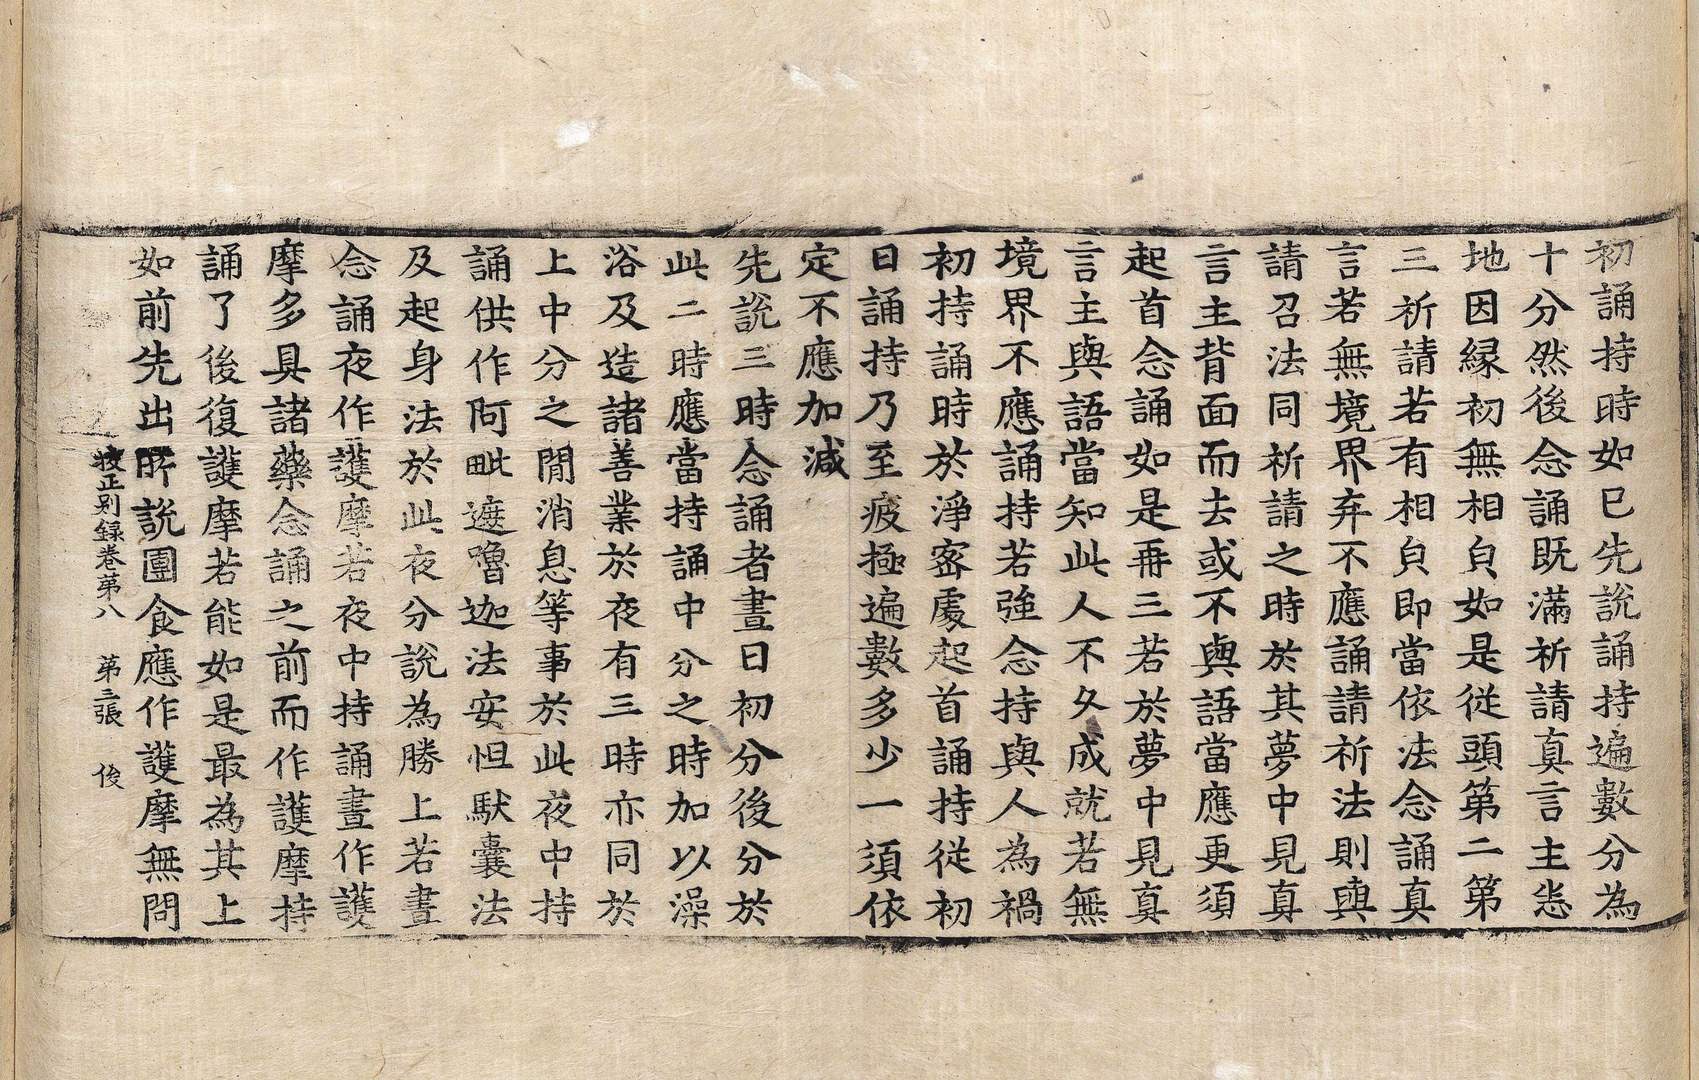 初誦持時如已先說誦持遍數分為
十分然後念誦既滿祈請真言主悉
地因緣初無相皃如是從頭第二第
三祈請若有相皃即當依法念誦真
言若無境界弃不應誦請祈法則與
請召法同祈請之時於其夢中見真
言主背面而去或不與語當應更須
起首念誦如是再三若於夢中見真
言主與語當知此人不久成就若無
境界不應誦持若強念持與人為禍
初持誦時於淨密處起首誦持從初
日誦持乃至疲極遍數多少一須依
定不應加減
先說三時念誦者晝日初分後分於
此二時應當持誦中分之時加以澡
浴及造諸善業於夜有三時亦同於
上中分之閒消息等事於此夜中持
誦供作阿毗遮嚕迦法安怛馱囊法
及起身法於此夜分說為勝上若晝
念誦夜作護摩若夜中持誦晝作護
摩多具諸藥念誦之前而作護摩持
誦了後復護摩若能如是最為其上
如前先出所說團食應作護摩無問
校正别錄卷第八 第二張 俊